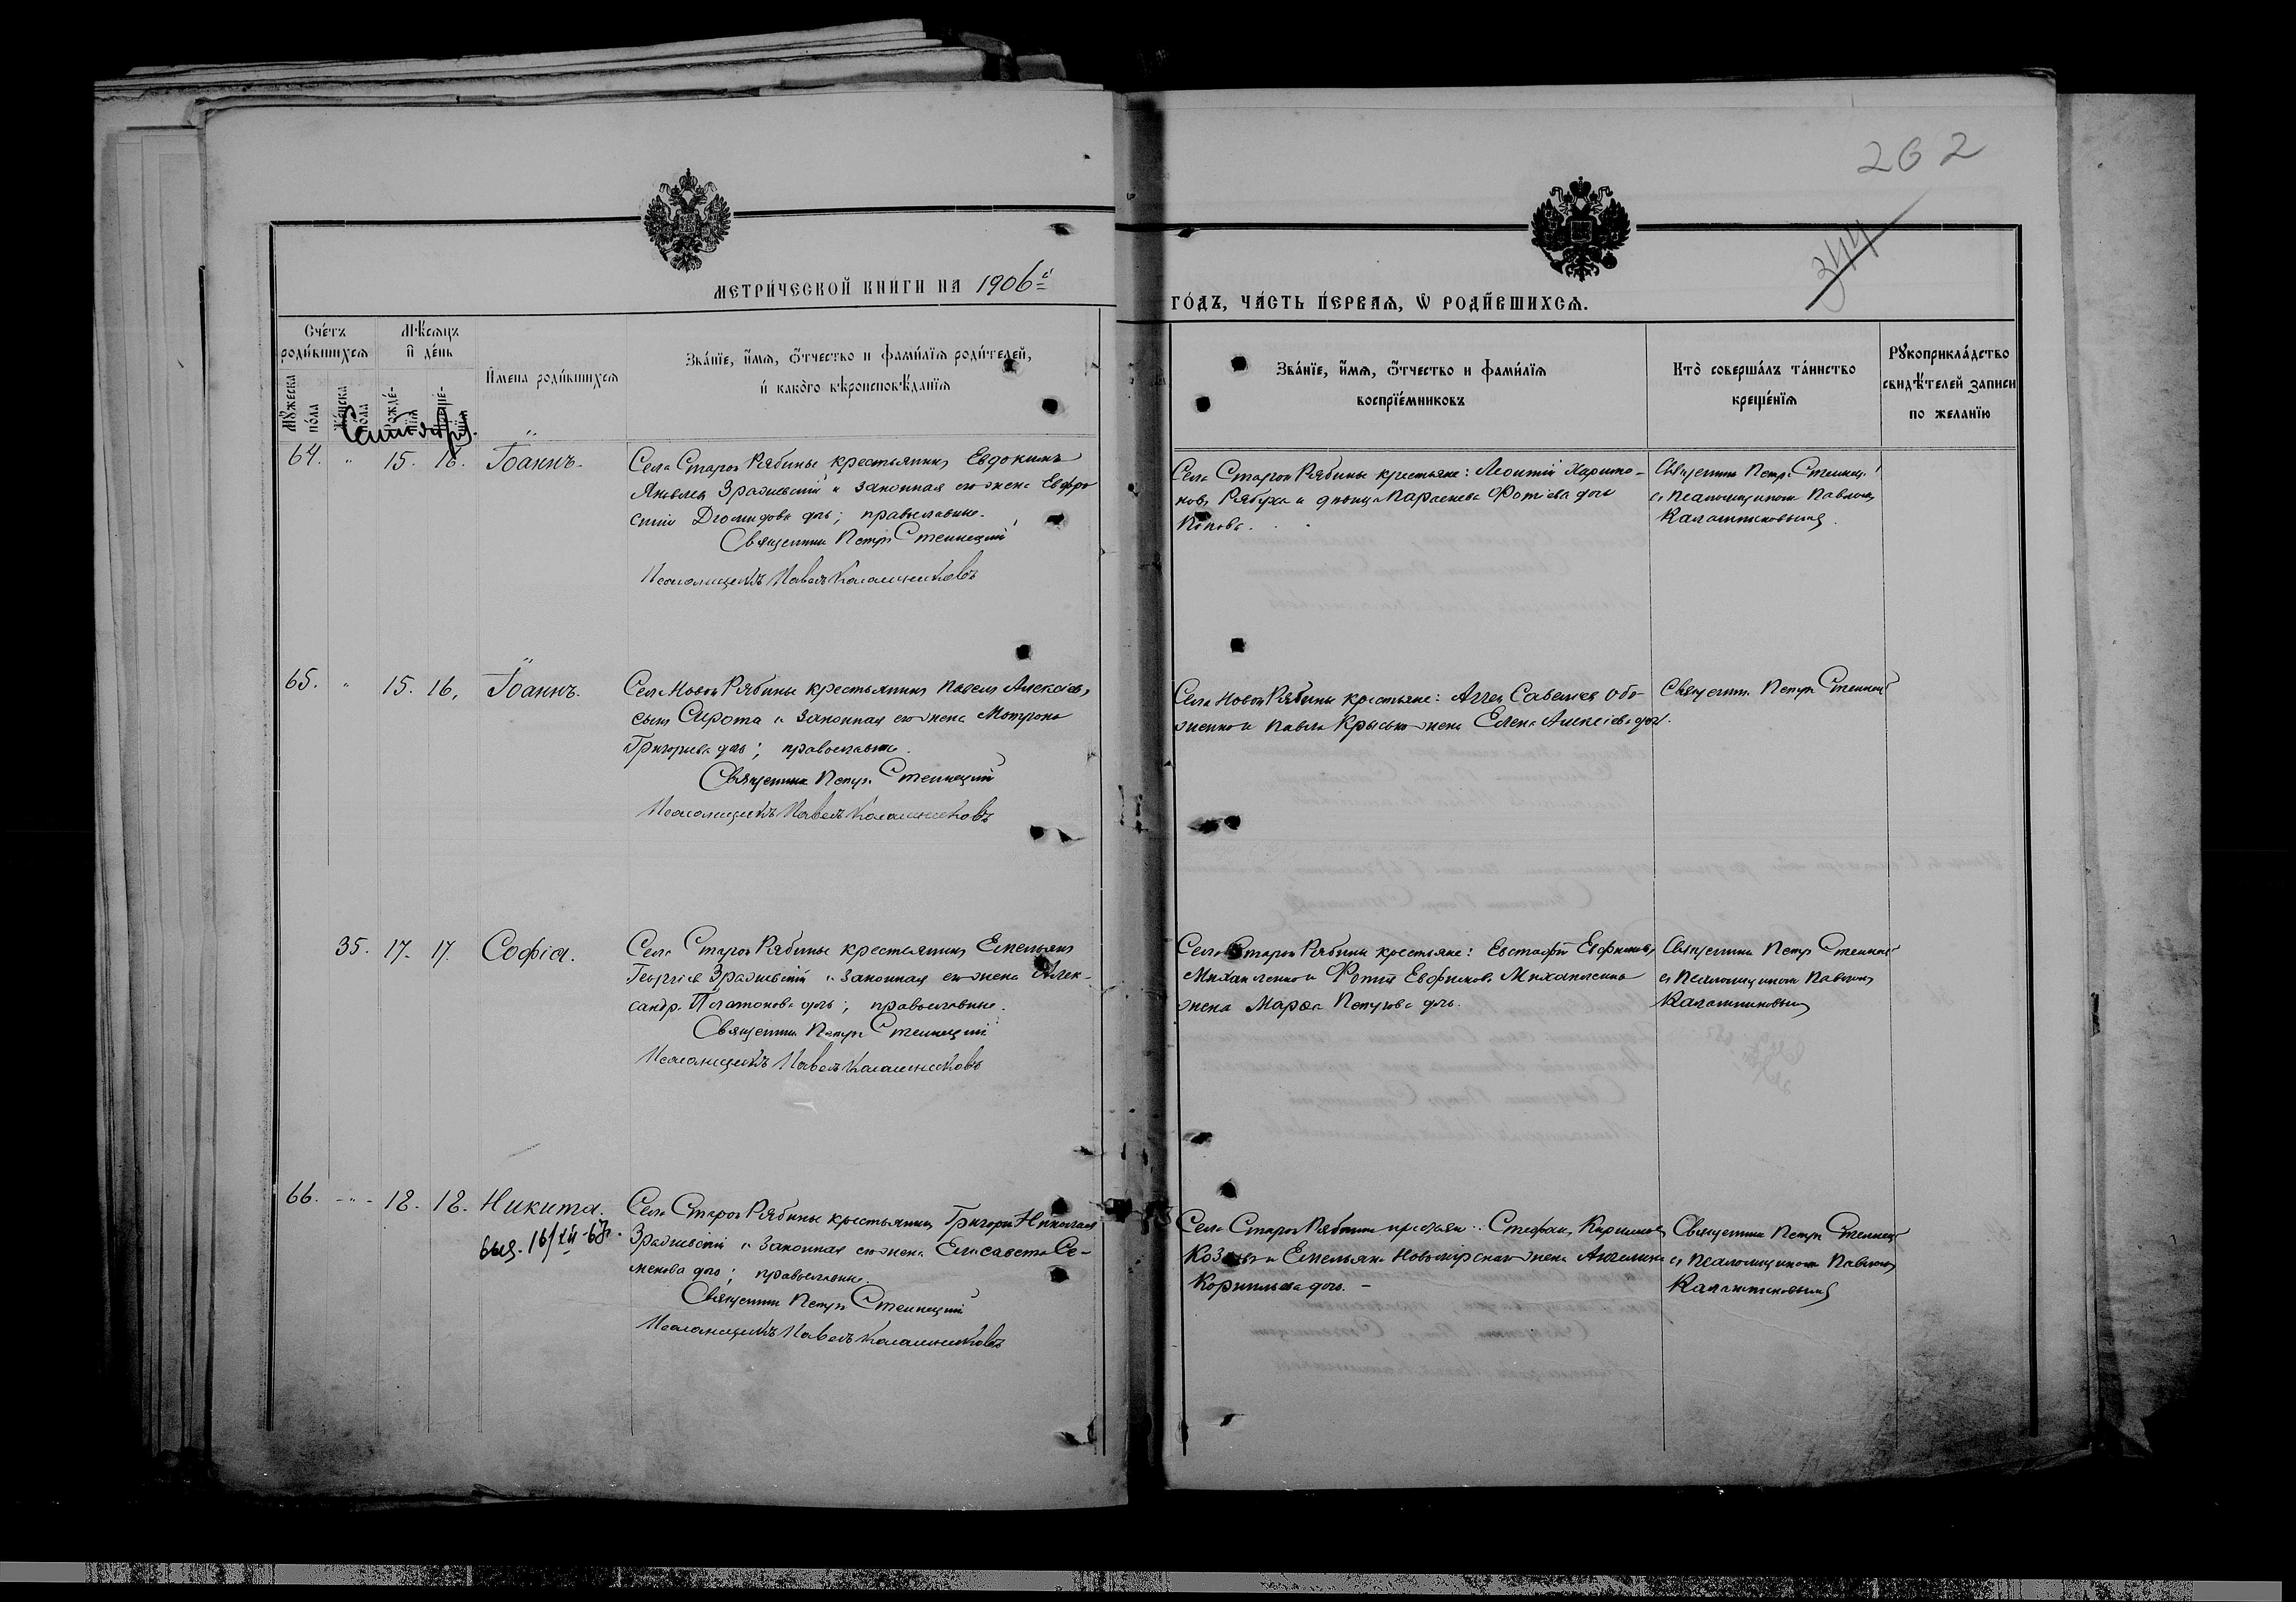 202
344
МЕТРИ́ЧЕСКОЙ КНИ́ГИ НА 1906й
ГО́ДЪ, ЧА́СТЬ ПЕ́РВАѦ, Ѡ РОДИ́ВШИХСѦ.
Сче́тъ роди́вшихсѧ
Мѣ́сѧцъ и де́нь
Мꙋ́жеска по́ла
Же́нска по́ла
Рожде́нїѧ
Креще́нїѧ
И́мена роди́вшихсѧ
Зва́нїе, и́мѧ, ѻ́тчество и фами́лїѧ роди́телей,
и како́го вѣроисповѣ́данїѧ
Зва́нїе, и́мѧ, ѻ́тчество и фами́лїѧ
воспрїе́мниковъ
Кто̀ соверша́лъ та́инство
креще́нїѧ
Рꙋкоприкла́дство
свидѣ́телей записи
по жела́нїю
Сентября.
64. " 15. 16. Іоаннъ.
Села Старой Рябины крестьянинъ Евдокимъ
Яковлевъ Зражевскій и законная его жена Евфро
синія Діомидова дочь; православные.
Священникъ Петръ Стеллецкій
Псаломщикъ Павелъ Калашниковъ
Села Старой Рябины крестьяне: Леонтій Харито-
новъ Рябуха и дѣвица Параскева Фотіева дочь
Попова.
Священникъ Петръ Стеллецкій
съ псаломщикомъ Павломъ
Калашниковымъ.
65. " 15. 16. Іоаннъ.
Села Новой Рябины крестьянинъ Павелъ Алексіевъ
сынъ Сирота и законная его жена Мотрона
Григорьева дочь; православные.
Священникъ Петръ Стеллецкій
Псаломщикъ Павелъ Калашниковъ
Села Новой Рябины крестьяне: Савельевъ
и Павла жена Елена Алексіева дочь.
Священникъ Петръ Стеллецкій
35. 17. 17. Софія.
Села Старой Рябины крестьянинъ Емельянъ
Георгіевъ Зражевскій и законная его жена Алек-
сандра Платонова дочь; православные.
Священникъ Петръ Стеллецкій
Псаломщикъ Павелъ Калашниковъ
Села Старой Рябины крестьяне: Евстафій Евфимовъ
Михайленко и Фотія Евфимова Михайленка
жена Марѳа Петрова дочь.
Священникъ Петръ Стеллецкій
съ псаломщикомъ Павломъ
Калашниковымъ
66. " 18. 18. Никита.
16/XII-67г.
Села Старой Рябины крестьянинъ Григорій Николаевъ
Зражевскій и законная его жена Елисавета Се-
менова дочь; православные.
Священникъ Петръ Стеллецкій
Псаломщикъ Павелъ Калашниковъ
Села Старой Рябины крестьяне: Стефанъ
и Емельяна жена
Корнильева дочь. –
Священникъ Петръ Стеллецкій
съ псаломщикомъ Павломъ
Калашниковымъ